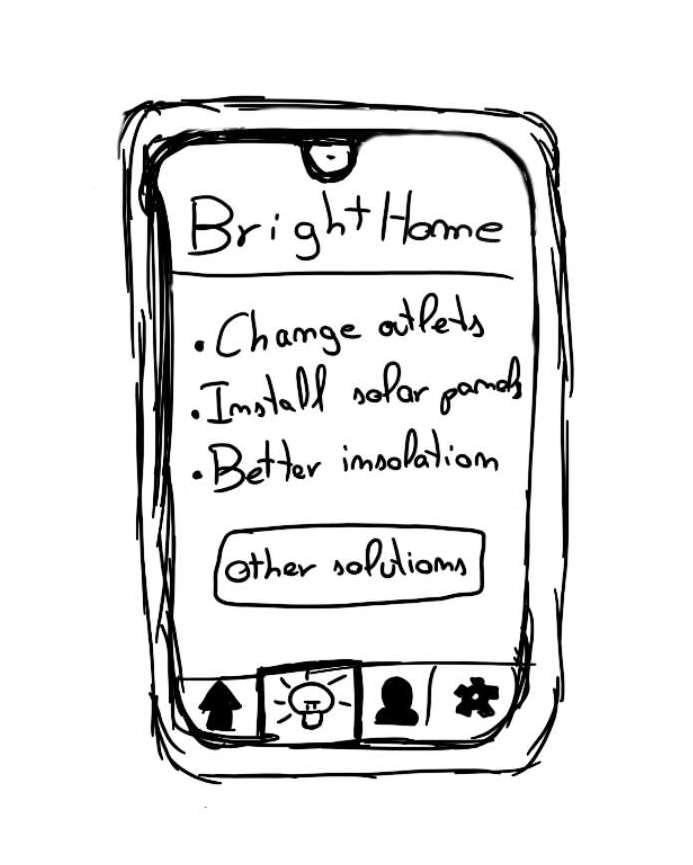 BrightHome
• Change outlets
• Install solar panels
• Better insolation
Other solutions